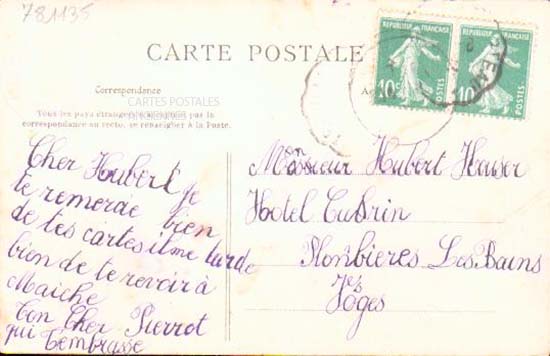 781135
REPUBLIQUE FRANÇAISE
REPUBLIQUE FRANÇAISE
10c POSTES
10c POSTES
CARTE POSTALE
Correspondance
CARTES POSTALES
Tous les pays étrangers n'acceptent pas la
correspondance au recto, se renseigner à la Poste.
Cher Houbert je
te remercie bien
de tes cartes il me tarde
bien de te revoir à
Maiche
Ton Cher Pierrot
qui t'embrasse
Monsieur Hubert Heuser
Hotel
Plonbieres Les Bains
Voges